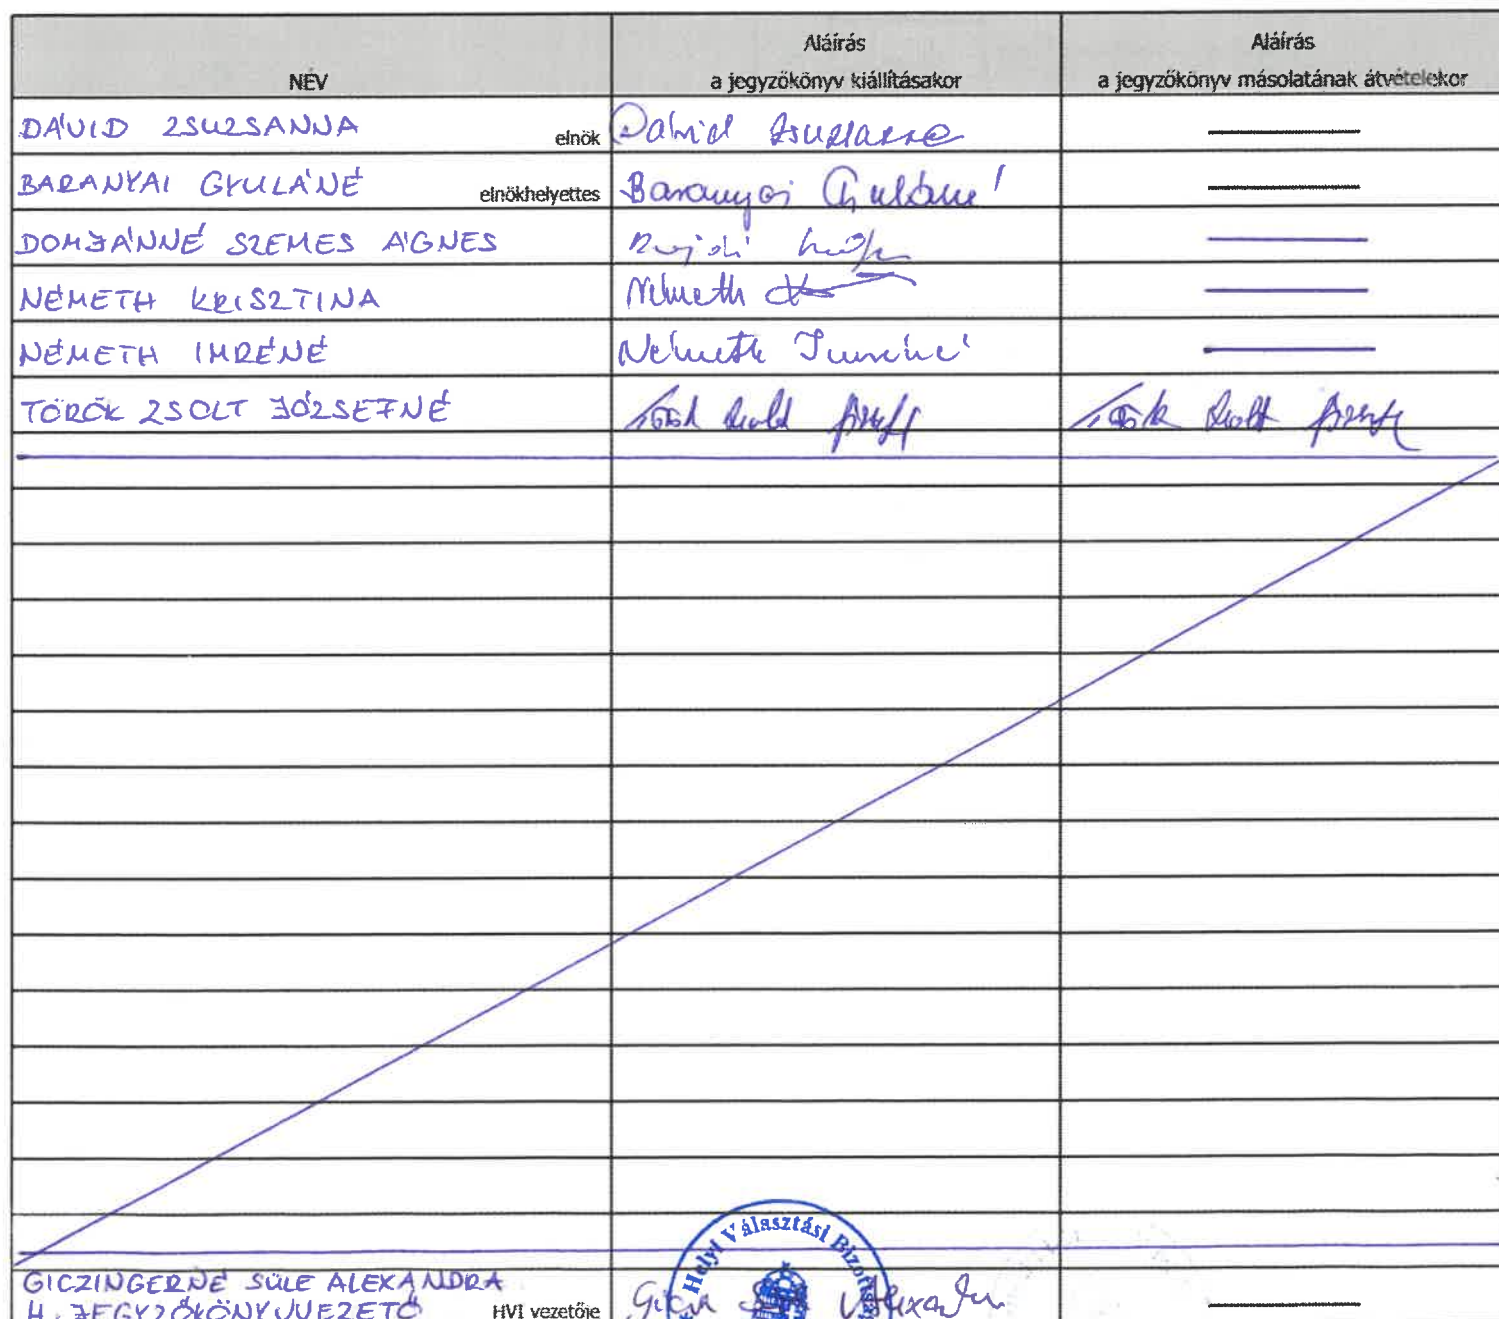 NÉV
Aláírás
a jegyzőkönyv kiállításakor
Aláírás
a jegyzőkönyv másolatának átvételekor
DÁVID ZSUZSANNA elnök Dávid Zsuzsanna
BARANYAI GYULÁNÉ elnökhelyettes Baranyai Gyuláné
DOMJÁNNÉ SZEMES ÁGNES
NÉMETH KRISZTINA Németh
NÉMETH IMRÉNÉ Németh Imréné
TÖRÖK ZSOLT JÓZSEFNÉ Török Zsolt Török Zsolt
Helyi Választási Bizottság
GICZINGERNÉ SÜLE ALEXANDRA
H. JEGYZŐKÖNYVVEZETŐ HVI vezetője Alexandra